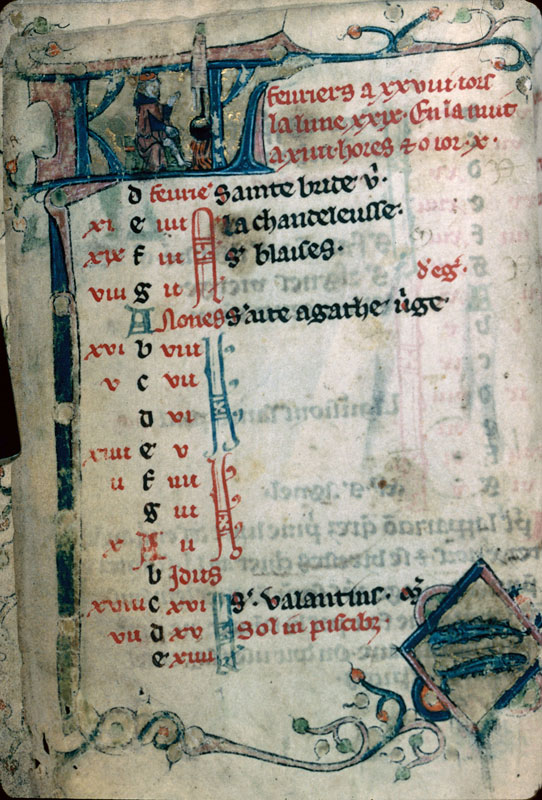 KL
feuriers a xxviii iors
la lune xxix. En la nuit
a xiiii hores & o ior .x.
d feurie' Sainte bride v'.
xi e iiii N la chandeleusse.
xix f iii s' blaises.
d'eg'.
viii g ii
A Nones s'aite agathe v'ge
xvi b viii
v c vii
d vi
xiii e v
ii f iiii
g iii
x A ii
b Idus
xviii c xvi s'. valantins.
vii d xv Sol in piscib'
e xiiii